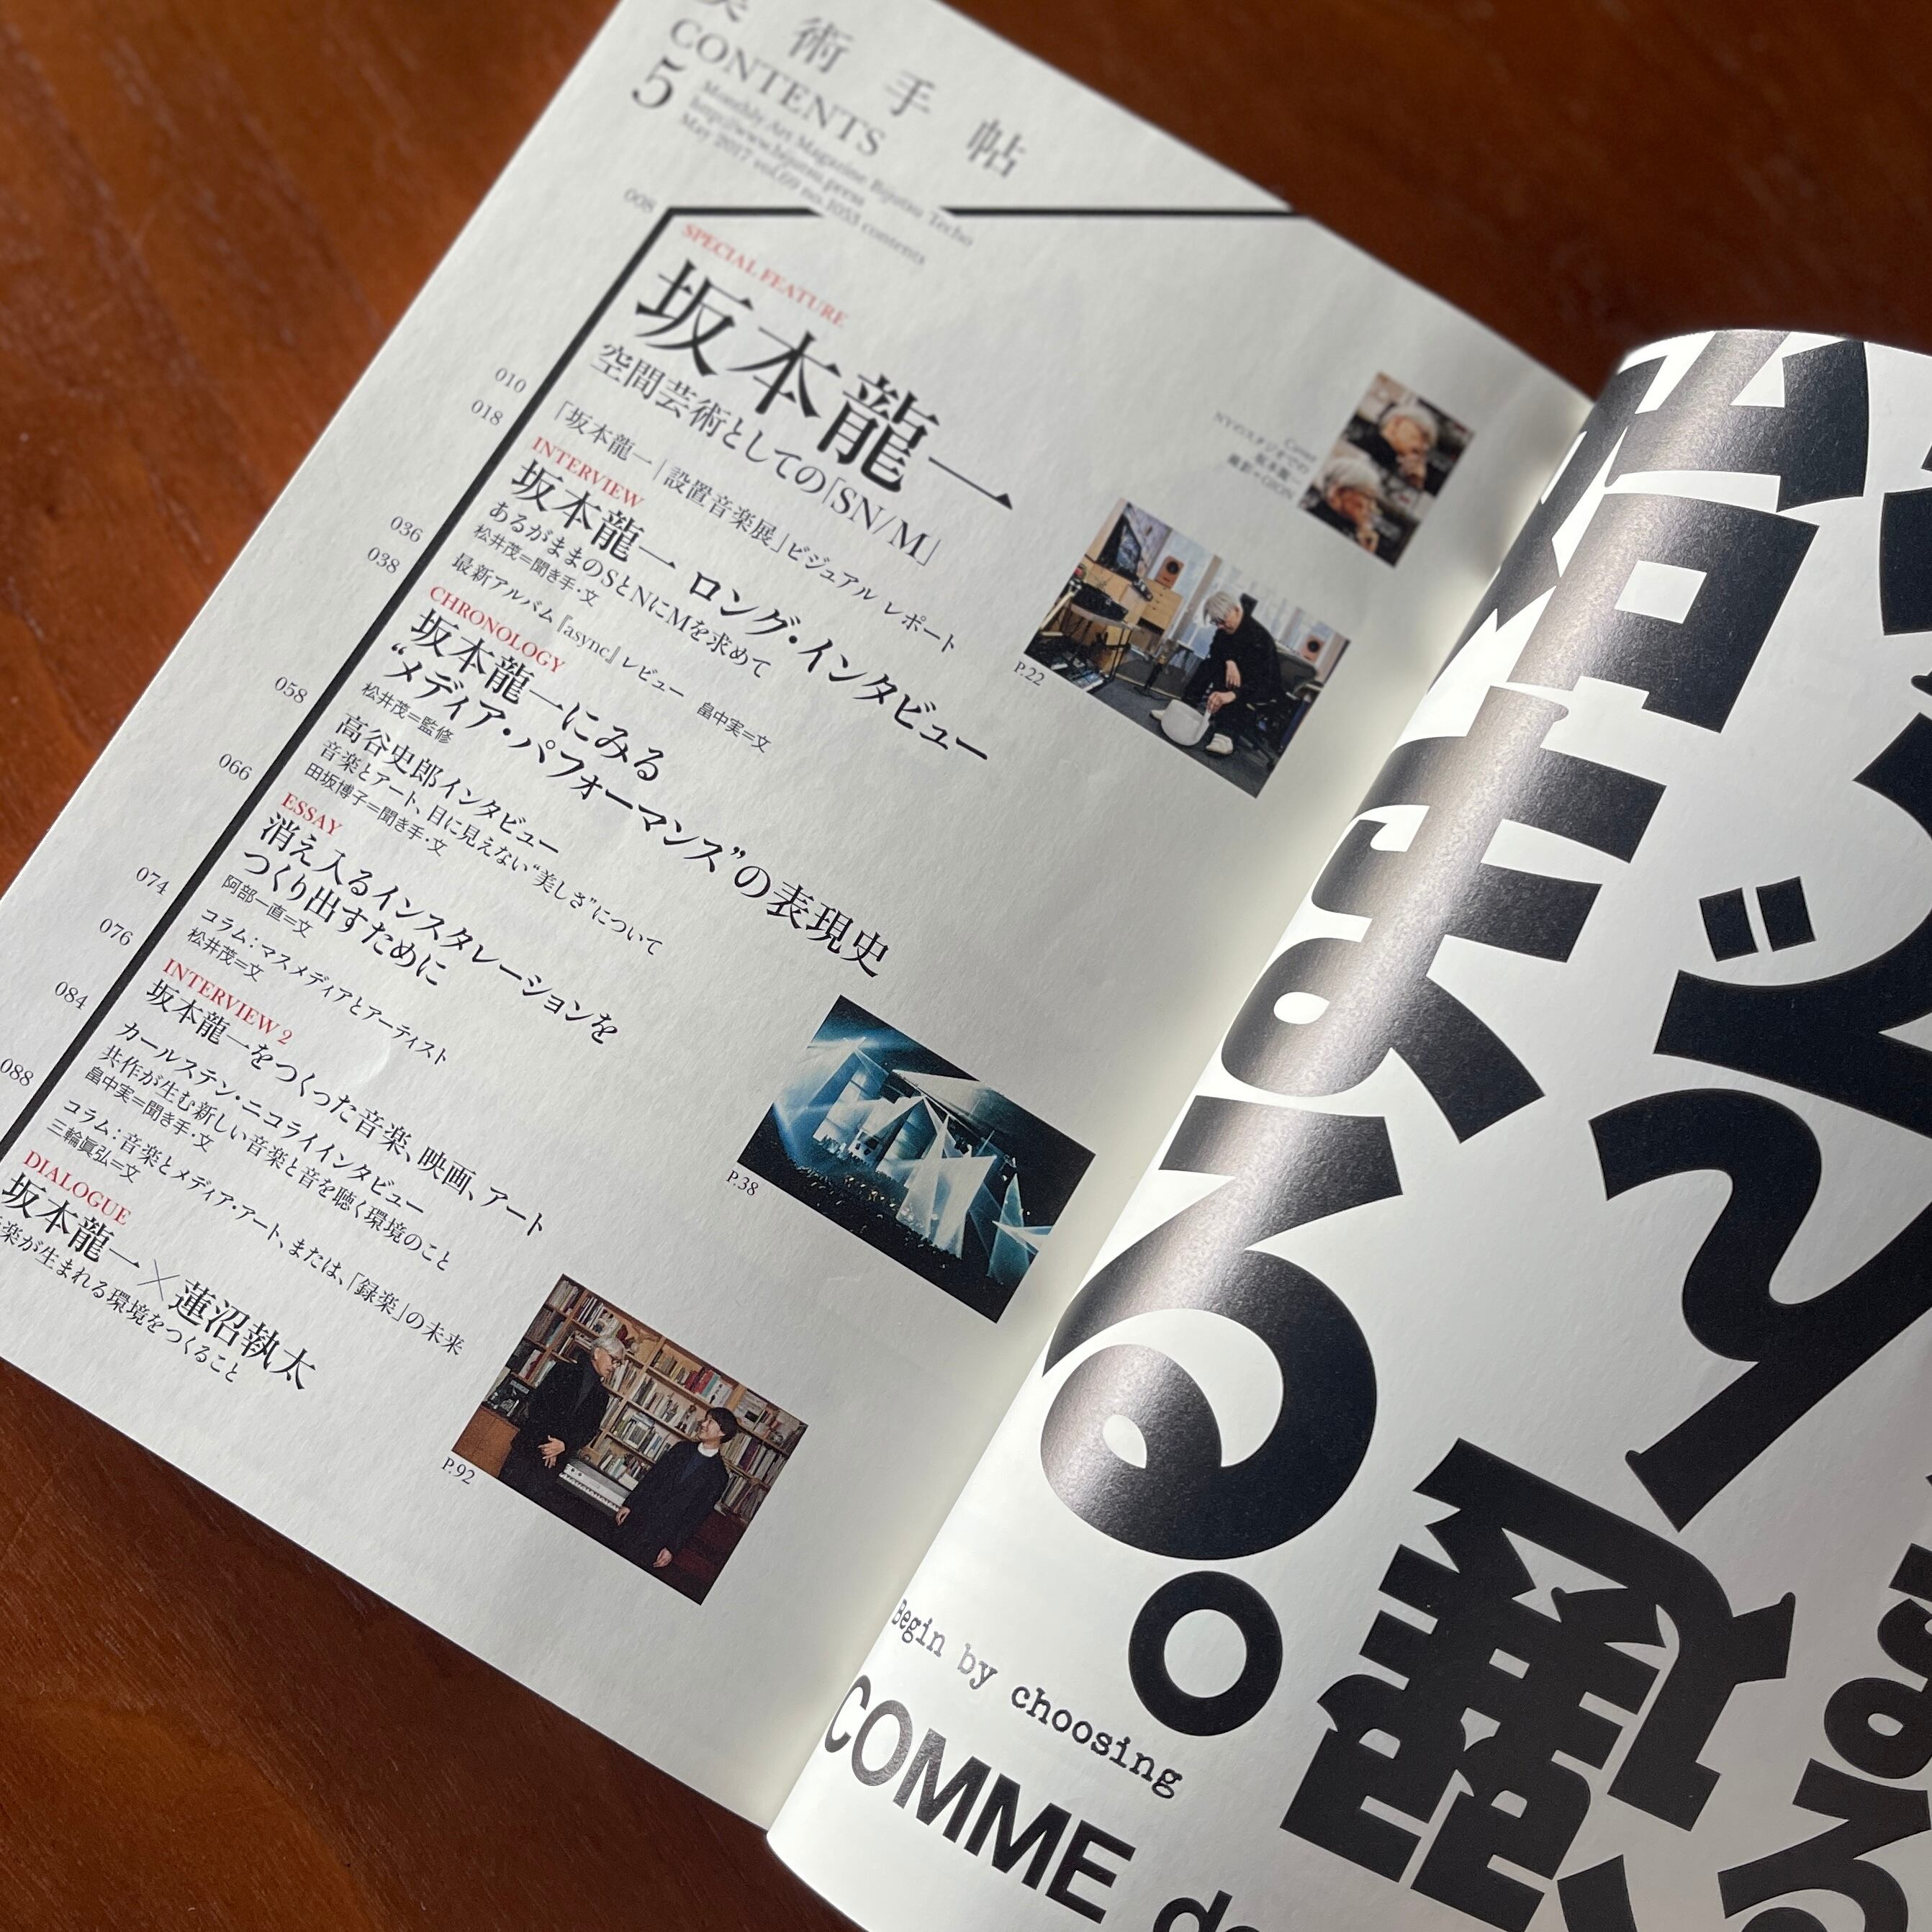 美術手帖
CONTENTS
5
Monthly Art Magazine Bijutsu Techo
http://www.bijutsu.press
May 2017 vol.69 no.1053 contents
008
SPECIAL FEATURE
坂本龍一
空間芸術としての「SN/M」
010
「坂本龍一｜設置音楽展」ビジュアル レポート
018
INTERVIEW
坂本龍一 ロング・インタビュー
あるがままのSとNにMを求めて
松井茂＝聞き手・文
036
最新アルバム『async』レビュー 畠中実＝文
038
CHRONOLOGY
坂本龍一にみる
“メディア・パフォーマンス”の表現史
松井茂＝監修
058
高谷史郎インタビュー
音楽とアート、目に見えない“美しさ”について
田坂博子＝聞き手・文
066
ESSAY
消え入るインスタレーションを
つくり出すために
阿部一直＝文
074
コラム：マスメディアとアーティスト
松井茂＝文
076
INTERVIEW 2
坂本龍一をつくった音楽、映画、アート
084
カールステン・ニコライインタビュー
共作が生む新しい音楽と音を聴く環境のこと
畠中実＝聞き手・文
088
コラム：音楽とメディア・アート、または、「録楽」の未来
三輪眞弘＝文
DIALOGUE
坂本龍一×蓮沼執太
楽が生まれる環境をつくること
Cover
NYのスタジオでの
坂本龍一
P.22
P.38
P.92
始まる。
Begin by choosing
COMME de